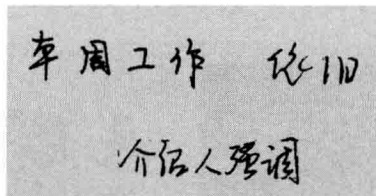 本周工作 依旧
介绍人强调